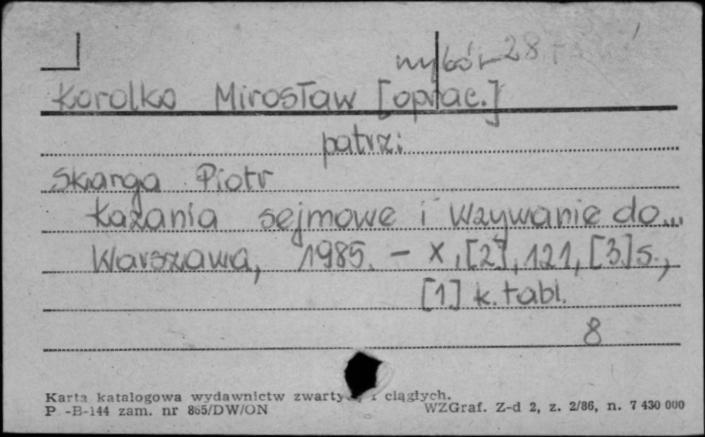 wybór 28
Korolko Mirosław [oprac.]
patrz:
Skarga Piotr
Kazania sejmowe i Wzywanie do...
Warszawa, 1985. – X, [2], 121, [3] s.,
[1] k. tabl.
8
Karta katalogowa wydawnictw zwartych i ciągłych.
P -B-144 zam. nr 865/DW/ON WZGraf. Z-d 2, z. 2/86, n. 7 430 000